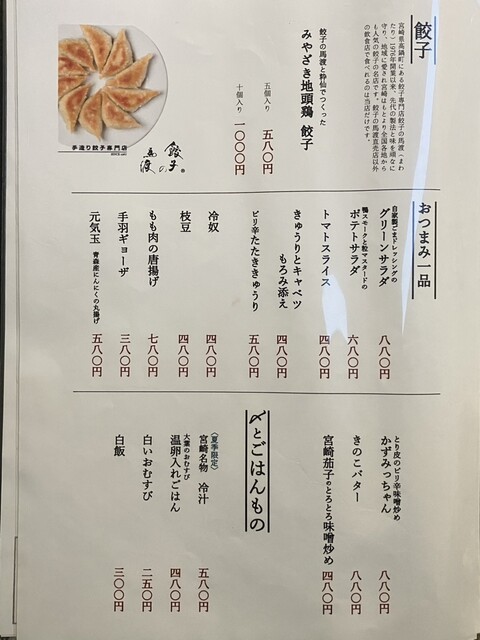 餃子
宮崎県高鍋町にある餃子専門店餃子の馬渡(まわ
たり)1976年開業以来、先代の製法と味を頑なに
守り、地域に愛され宮崎はもとより全国各地から
も人気の餃子の名店です。餃子の馬渡直売店以外
の飲食店で食べれるのは当店だけです。
餃子の馬渡と粋仙でつくった
みやざき地頭鶏 餃子
五個入り 五八〇円
十個入り 一〇〇〇円
手造り餃子専門店
餃子の馬渡
おつまみ一品
自家製ごまドレッシングの
グリーンサラダ 八八〇円
鴨スモークと粒マスタードの
ポテトサラダ 六八〇円
トマトスライス 四八〇円
きゅうりとキャベツ
もろみ添え 四八〇円
ピリ辛たたききゅうり 五八〇円
冷奴 四八〇円
枝豆 四八〇円
もも肉の唐揚げ 七八〇円
手羽ギョーザ 三八〇円
元気玉 青森産にんにくの丸揚げ 五八〇円
とり皮のピリ辛味噌炒め
かずみっちゃん 八八〇円
きのこバター 八八〇円
宮崎茄子のとろとろ味噌炒め 四八〇円
〆とごはんもの
〈夏季限定〉
宮崎名物 冷汁 五八〇円
温卵入れごはん 四八〇円
大葉のおむすび
白いおむすび 二五〇円
白飯 三〇〇円